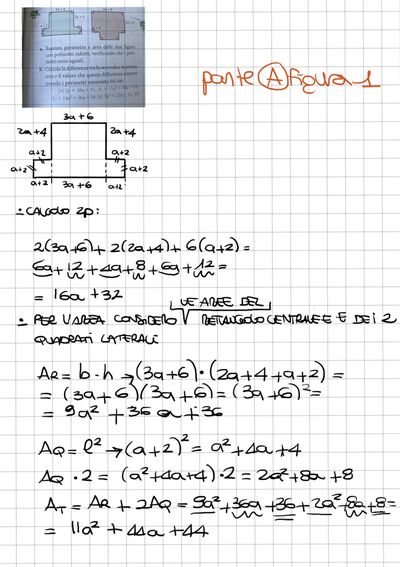 a. Esprimi perimetro e area delle due figure
con polinomi ridotti, verificando che i peri-
metri sono uguali.
b. Calcola la differenza tra la seconda e la prima
area e il valore che questa differenza assume
quando i perimetri misurano 64 cm.
parte A figura 1
3a+6
2a+4 2a+4
a+2 a+2
a+2 a+2
a+2 3a+6 a+2
∸ CALCOLO 2p:
2(3a+6)+2(2a+4)+6(a+2)=
6a+12+4a+8+6a+12=
=16a+32
LE AREE DEL
PER L'AREA CONSIDERO RETANGOLO CENTRALE E DEI 2
QUADRATI LATERALI
AR = b·h → (3a+6)·(2a+4+a+2)=
= (3a+6)(3a+6)=(3a+6)²=
= 9a²+36a+36
AQ = l² → (a+2)² = a²+4a+4
AQ·2 = (a²+4a+4)·2 = 2a²+8a+8
AT = AR + 2AQ = 9a²+36a+36+2a²+8a+8=
= 11a²+44a+44